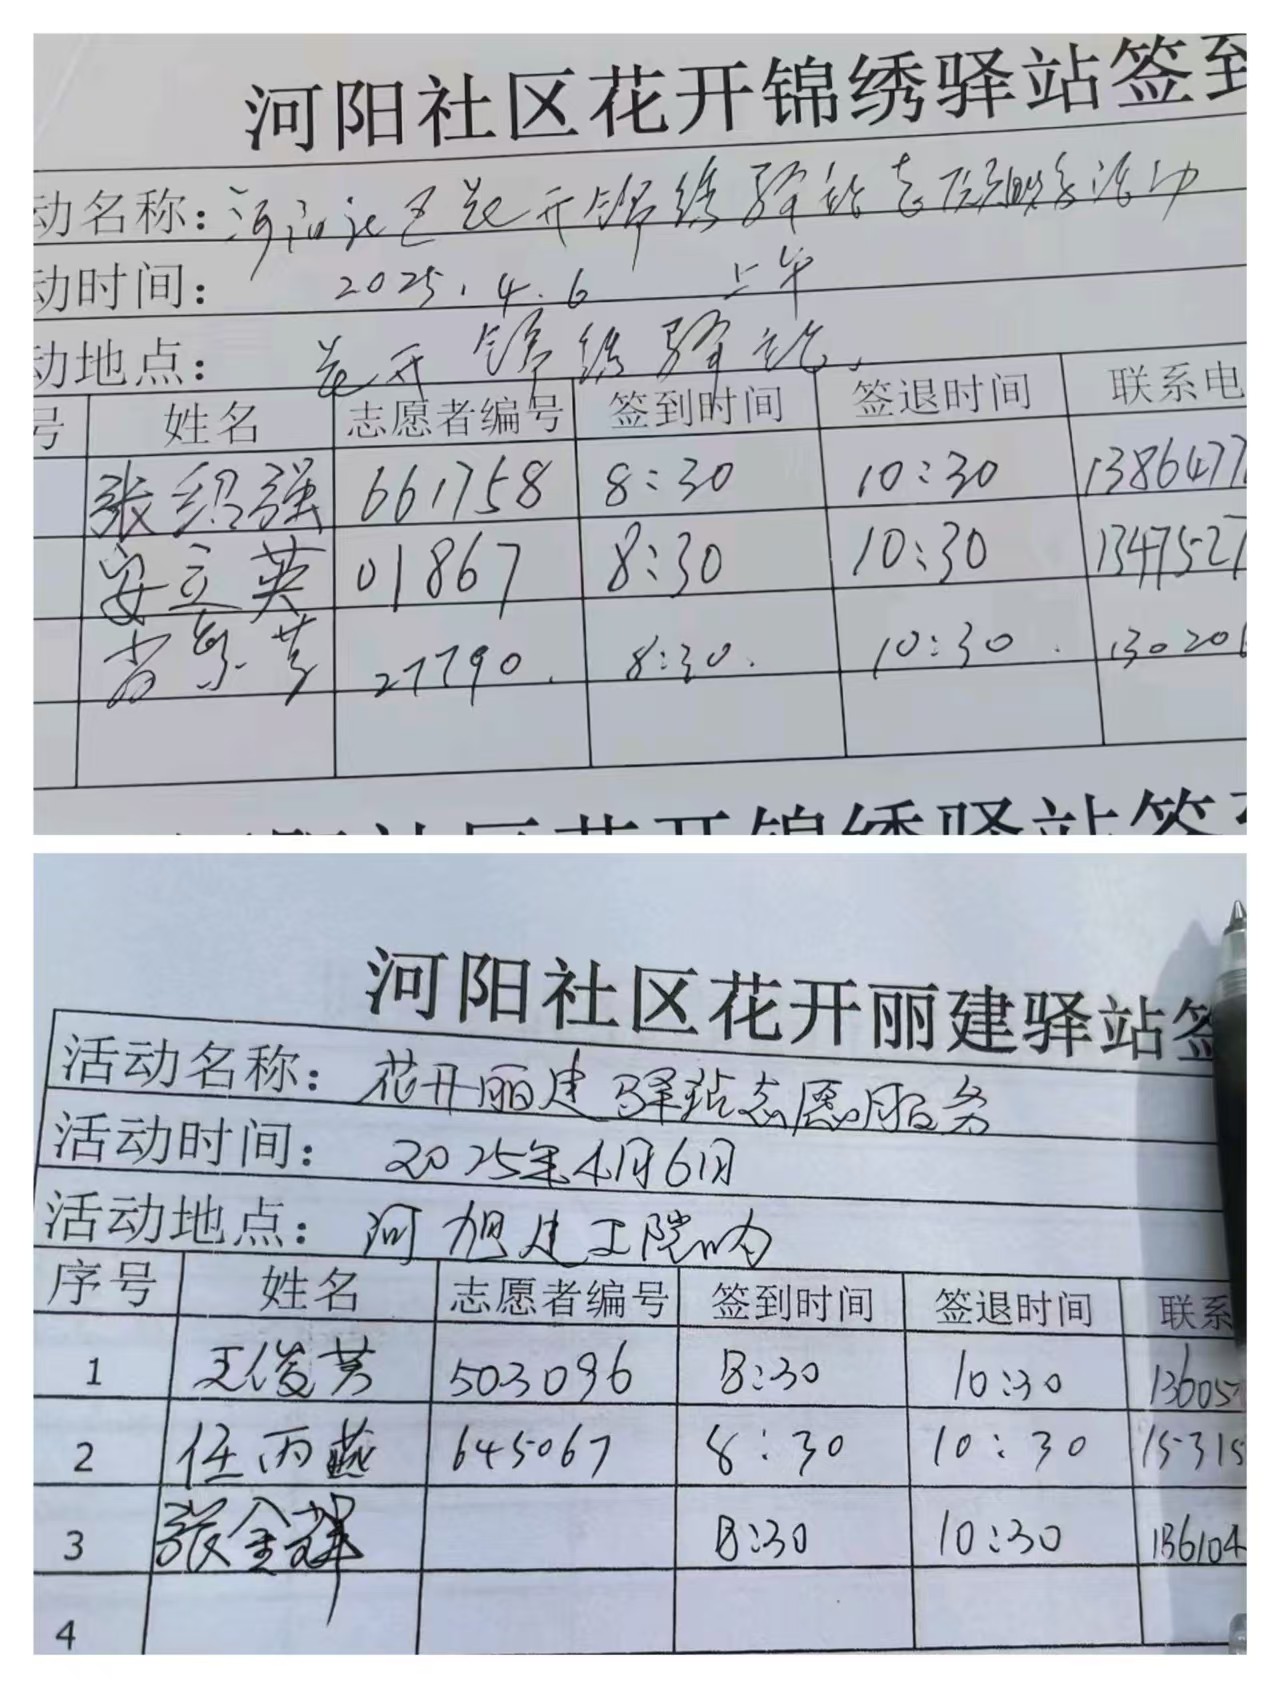 河阳社区花开锦绣驿站签到
动名称：河阳社区花开锦绣驿站志愿服务活动
动时间： 2025.4.6 上午
动地点： 花开锦绣驿站
号 姓名 志愿者编号 签到时间 签退时间 联系电
张绍强 661758 8:30 10:30 1386477
安立英 01867 8:30 10:30 1347527
27790 8:30 10:30 130206
河阳社区花开锦绣驿站签到
河阳社区花开丽建驿站签
活动名称：花开丽建驿站志愿服务
活动时间： 2025年4月6日
活动地点： 河旭建工院内
序号 姓名 志愿者编号 签到时间 签退时间 联系
1 王俊芳 503096 8:30 10:30 13605
2 任丙燕 645067 8:30 10:30 15315
3 张金群 8:30 10:30 136104
4